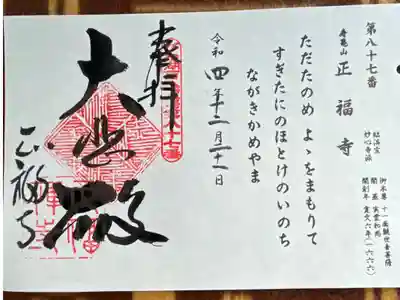 第八十七番
寿亀山
正福寺
臨済宗
妙心寺派
御本尊 十一面観世音菩薩
開基 実堂和尚
開創年 寛文六年(一六六六)
ただたのめ よゝをまもりて
すぎたにのほとけのいのち
ながきかめやま
令和四年十二月二十一日
奉拝
大悲殿
正福寺